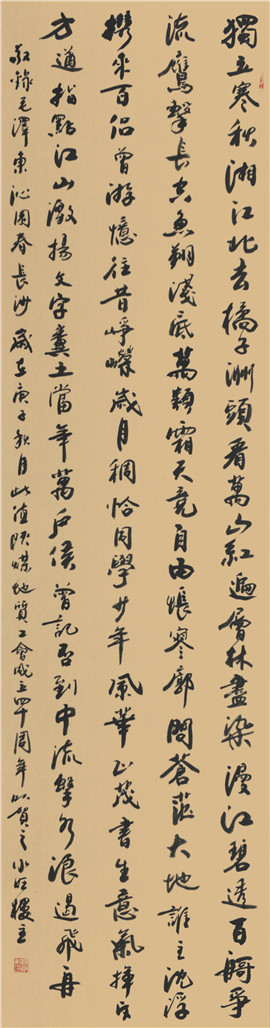 獨立寒秋湘江北去橘子洲頭看萬山紅遍層林盡染漫江碧透百舸爭
流鷹擊長空魚翔淺底萬類霜天競自由悵寥廓問蒼茫大地誰主沈浮
攜來百侶曾游憶往昔崢嶸歲月稠恰同學少年風華正茂書生意氣揮斥
方遒指點江山激揚文字糞土當年萬戶侯曾記否到中流擊水浪遏飛舟
敬錄毛澤東沁園春長沙歲在庚子秋月此值陝煤地質工會成立四十周年以賀之小樓主